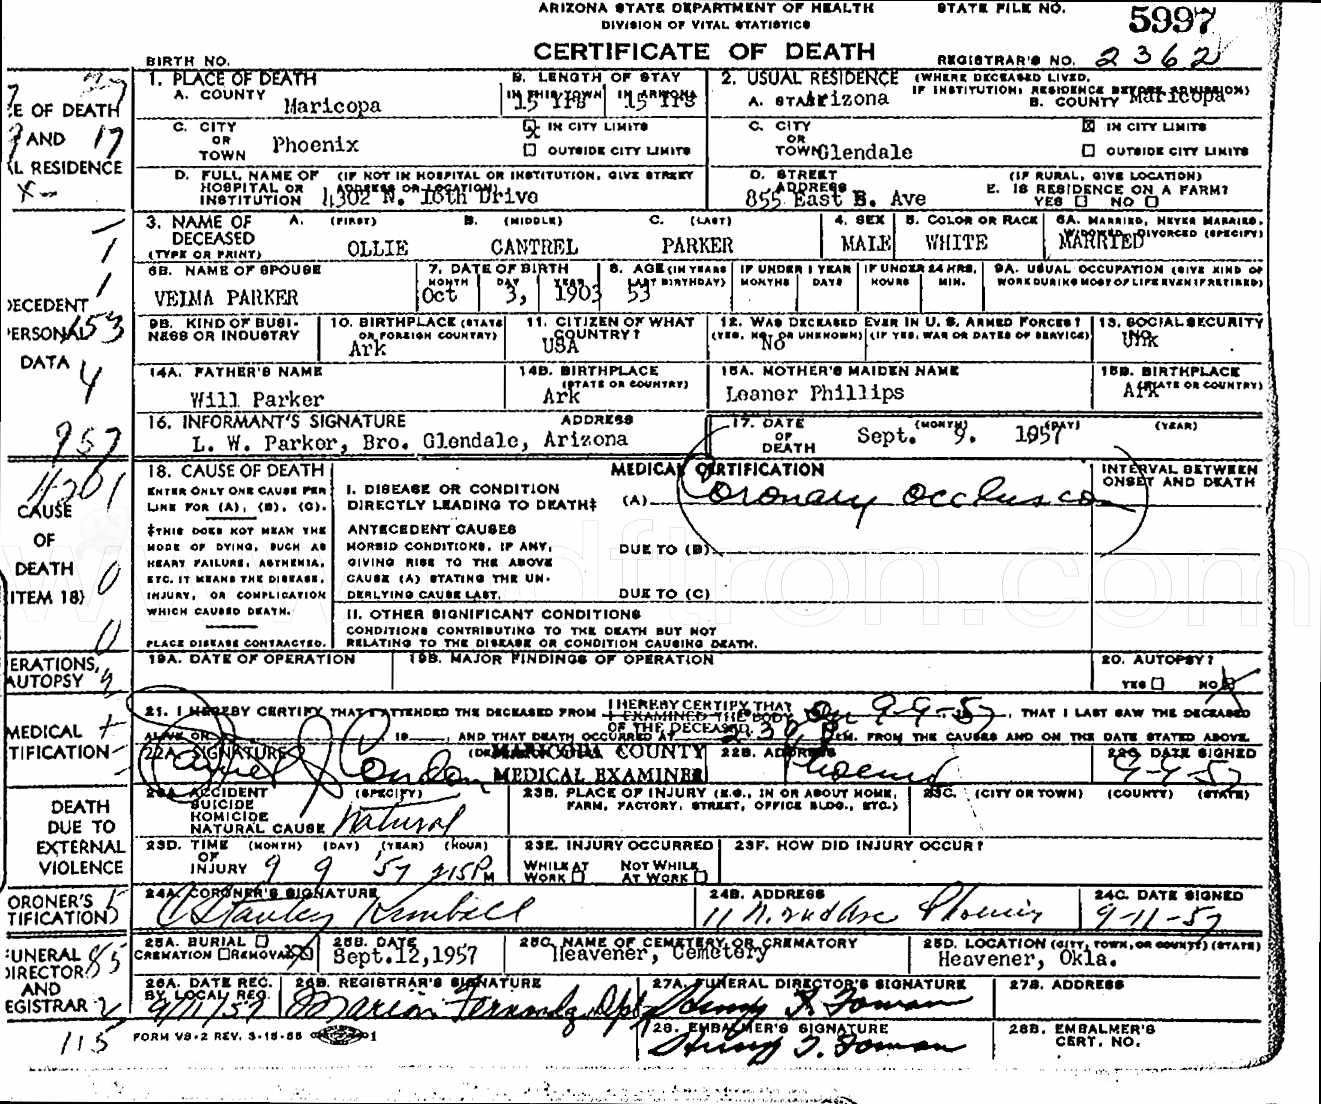 ARIZONA STATE DEPARTMENT OF HEALTH
DIVISION OF VITAL STATISTICS
CERTIFICATE OF DEATH
STATE FILE NO. 5997
REGISTRAR'S NO. 2362
BIRTH NO.
1. PLACE OF DEATH
A. COUNTY Maricopa
B. LENGTH OF STAY
IN THIS TOWN 15 Yrs
IN ARIZONA 15 Yrs
2. USUAL RESIDENCE (WHERE DECEASED LIVED. IF INSTITUTION: RESIDENCE BEFORE ADMISSION)
A. STATE Arizona
B. COUNTY Maricopa
C. CITY OR TOWN Phoenix
IN CITY LIMITS
OUTSIDE CITY LIMITS
C. CITY OR TOWN Glendale
IN CITY LIMITS
OUTSIDE CITY LIMITS
D. FULL NAME OF HOSPITAL OR INSTITUTION (IF NOT IN HOSPITAL OR INSTITUTION, GIVE STREET ADDRESS OR LOCATION) 4302 N. 16th Drive
D. STREET ADDRESS 855 East B. Ave
(IF RURAL, GIVE LOCATION)
E. IS RESIDENCE ON A FARM?
YES NO
3. NAME OF DECEASED (TYPE OR PRINT)
A. (FIRST) OLLIE
B. (MIDDLE) CANTREL
C. (LAST) PARKER
4. SEX MALE
5. COLOR OR RACE WHITE
6A. MARRIED, NEVER MARRIED, WIDOWED, DIVORCED (SPECIFY) MARRIED
6B. NAME OF SPOUSE VELMA PARKER
7. DATE OF BIRTH
MONTH DAY YEAR
Oct 3, 1903
8. AGE (IN YEARS LAST BIRTHDAY) 53
IF UNDER 1 YEAR
MONTHS DAYS
IF UNDER 24 HRS.
HOURS MIN.
9A. USUAL OCCUPATION (GIVE KIND OF WORK DURING MOST OF LIFE EVEN IF RETIRED)
9B. KIND OF BUSINESS OR INDUSTRY
10. BIRTHPLACE (STATE OR FOREIGN COUNTRY) Ark
11. CITIZEN OF WHAT COUNTRY? USA
12. WAS DECEASED EVER IN U. S. ARMED FORCES? (YES, NO, OR UNKNOWN) (IF YES, WAR OR DATES OF SERVICE) No
13. SOCIAL SECURITY NO. Unk
14A. FATHER'S NAME Will Parker
14B. BIRTHPLACE (STATE OR COUNTRY) Ark
15A. MOTHER'S MAIDEN NAME Leaner Phillips
15B. BIRTHPLACE (STATE OR COUNTRY) Ark
16. INFORMANT'S SIGNATURE ADDRESS
L. W. Parker, Bro. Glendale, Arizona
17. DATE OF DEATH (MONTH) (DAY) (YEAR)
Sept. 9. 1957
18. CAUSE OF DEATH
ENTER ONLY ONE CAUSE PER LINE FOR (A), (B), (C).
‡THIS DOES NOT MEAN THE MODE OF DYING, SUCH AS HEART FAILURE, ASTHENIA, ETC. IT MEANS THE DISEASE, INJURY, OR COMPLICATION WHICH CAUSED DEATH.
PLACE DISEASE CONTRACTED.
MEDICAL CERTIFICATION
INTERVAL BETWEEN ONSET AND DEATH
I. DISEASE OR CONDITION DIRECTLY LEADING TO DEATH‡ (A) Coronary occlusion
ANTECEDENT CAUSES
MORBID CONDITIONS, IF ANY, GIVING RISE TO THE ABOVE CAUSE (A) STATING THE UNDERLYING CAUSE LAST.
DUE TO (B)
DUE TO (C)
II. OTHER SIGNIFICANT CONDITIONS
CONDITIONS CONTRIBUTING TO THE DEATH BUT NOT RELATING TO THE DISEASE OR CONDITION CAUSING DEATH.
19A. DATE OF OPERATION
19B. MAJOR FINDINGS OF OPERATION
20. AUTOPSY?
YES NO
21. I HEREBY CERTIFY THAT I ATTENDED THE DECEASED FROM I HEREBY CERTIFY THAT I EXAMINED THE BODY OF THE DECEASED On 9-9-57, THAT I LAST SAW THE DECEASED
ALIVE ON 19 , AND THAT DEATH OCCURRED AT 2:30 P.M. FROM THE CAUSES AND ON THE DATE STATED ABOVE.
22A. SIGNATURE
MARICOPA COUNTY
MEDICAL EXAMINER
22B. ADDRESS Phoenix
22C. DATE SIGNED 9-9-57
23A. ACCIDENT SUICIDE HOMICIDE NATURAL CAUSE (SPECIFY) Natural
23B. PLACE OF INJURY (E.G., IN OR ABOUT HOME, FARM, FACTORY, STREET, OFFICE BLDG., ETC.)
23C. (CITY OR TOWN) (COUNTY) (STATE)
23D. TIME OF INJURY (MONTH) (DAY) (YEAR) (HOUR)
9 9 '57 2:15 PM
23E. INJURY OCCURRED
WHILE AT WORK NOT WHILE AT WORK
23F. HOW DID INJURY OCCUR?
24A. CORONER'S SIGNATURE C Stanley Kimball
24B. ADDRESS 11 N. 2nd Ave Phoenix
24C. DATE SIGNED 9-11-57
25A. BURIAL CREMATION REMOVAL
25B. DATE Sept.12,1957
25C. NAME OF CEMETERY OR CREMATORY Heavener, Cemetery
25D. LOCATION (CITY, TOWN, OR COUNTY) (STATE) Heavener, Okla.
26A. DATE REC. BY LOCAL REG. 9/11/57
26B. REGISTRAR'S SIGNATURE Marion
27A. FUNERAL DIRECTOR'S SIGNATURE
27B. ADDRESS
28. EMBALMER'S SIGNATURE
28B. EMBALMER'S CERT. NO.
FORM VS-2 REV. 3-15-55
CE OF DEATH
AND 17
AL RESIDENCE
DECEDENT
PERSONAL 153
DATA 4
957
4201
CAUSE
OF
DEATH
(ITEM 18)
ERATIONS,
AUTOPSY
MEDICAL
TIFICATION
DEATH
DUE TO
EXTERNAL
VIOLENCE
ORONER'S
TIFICATION
FUNERAL
DIRECTOR
AND
EGISTRAR
115